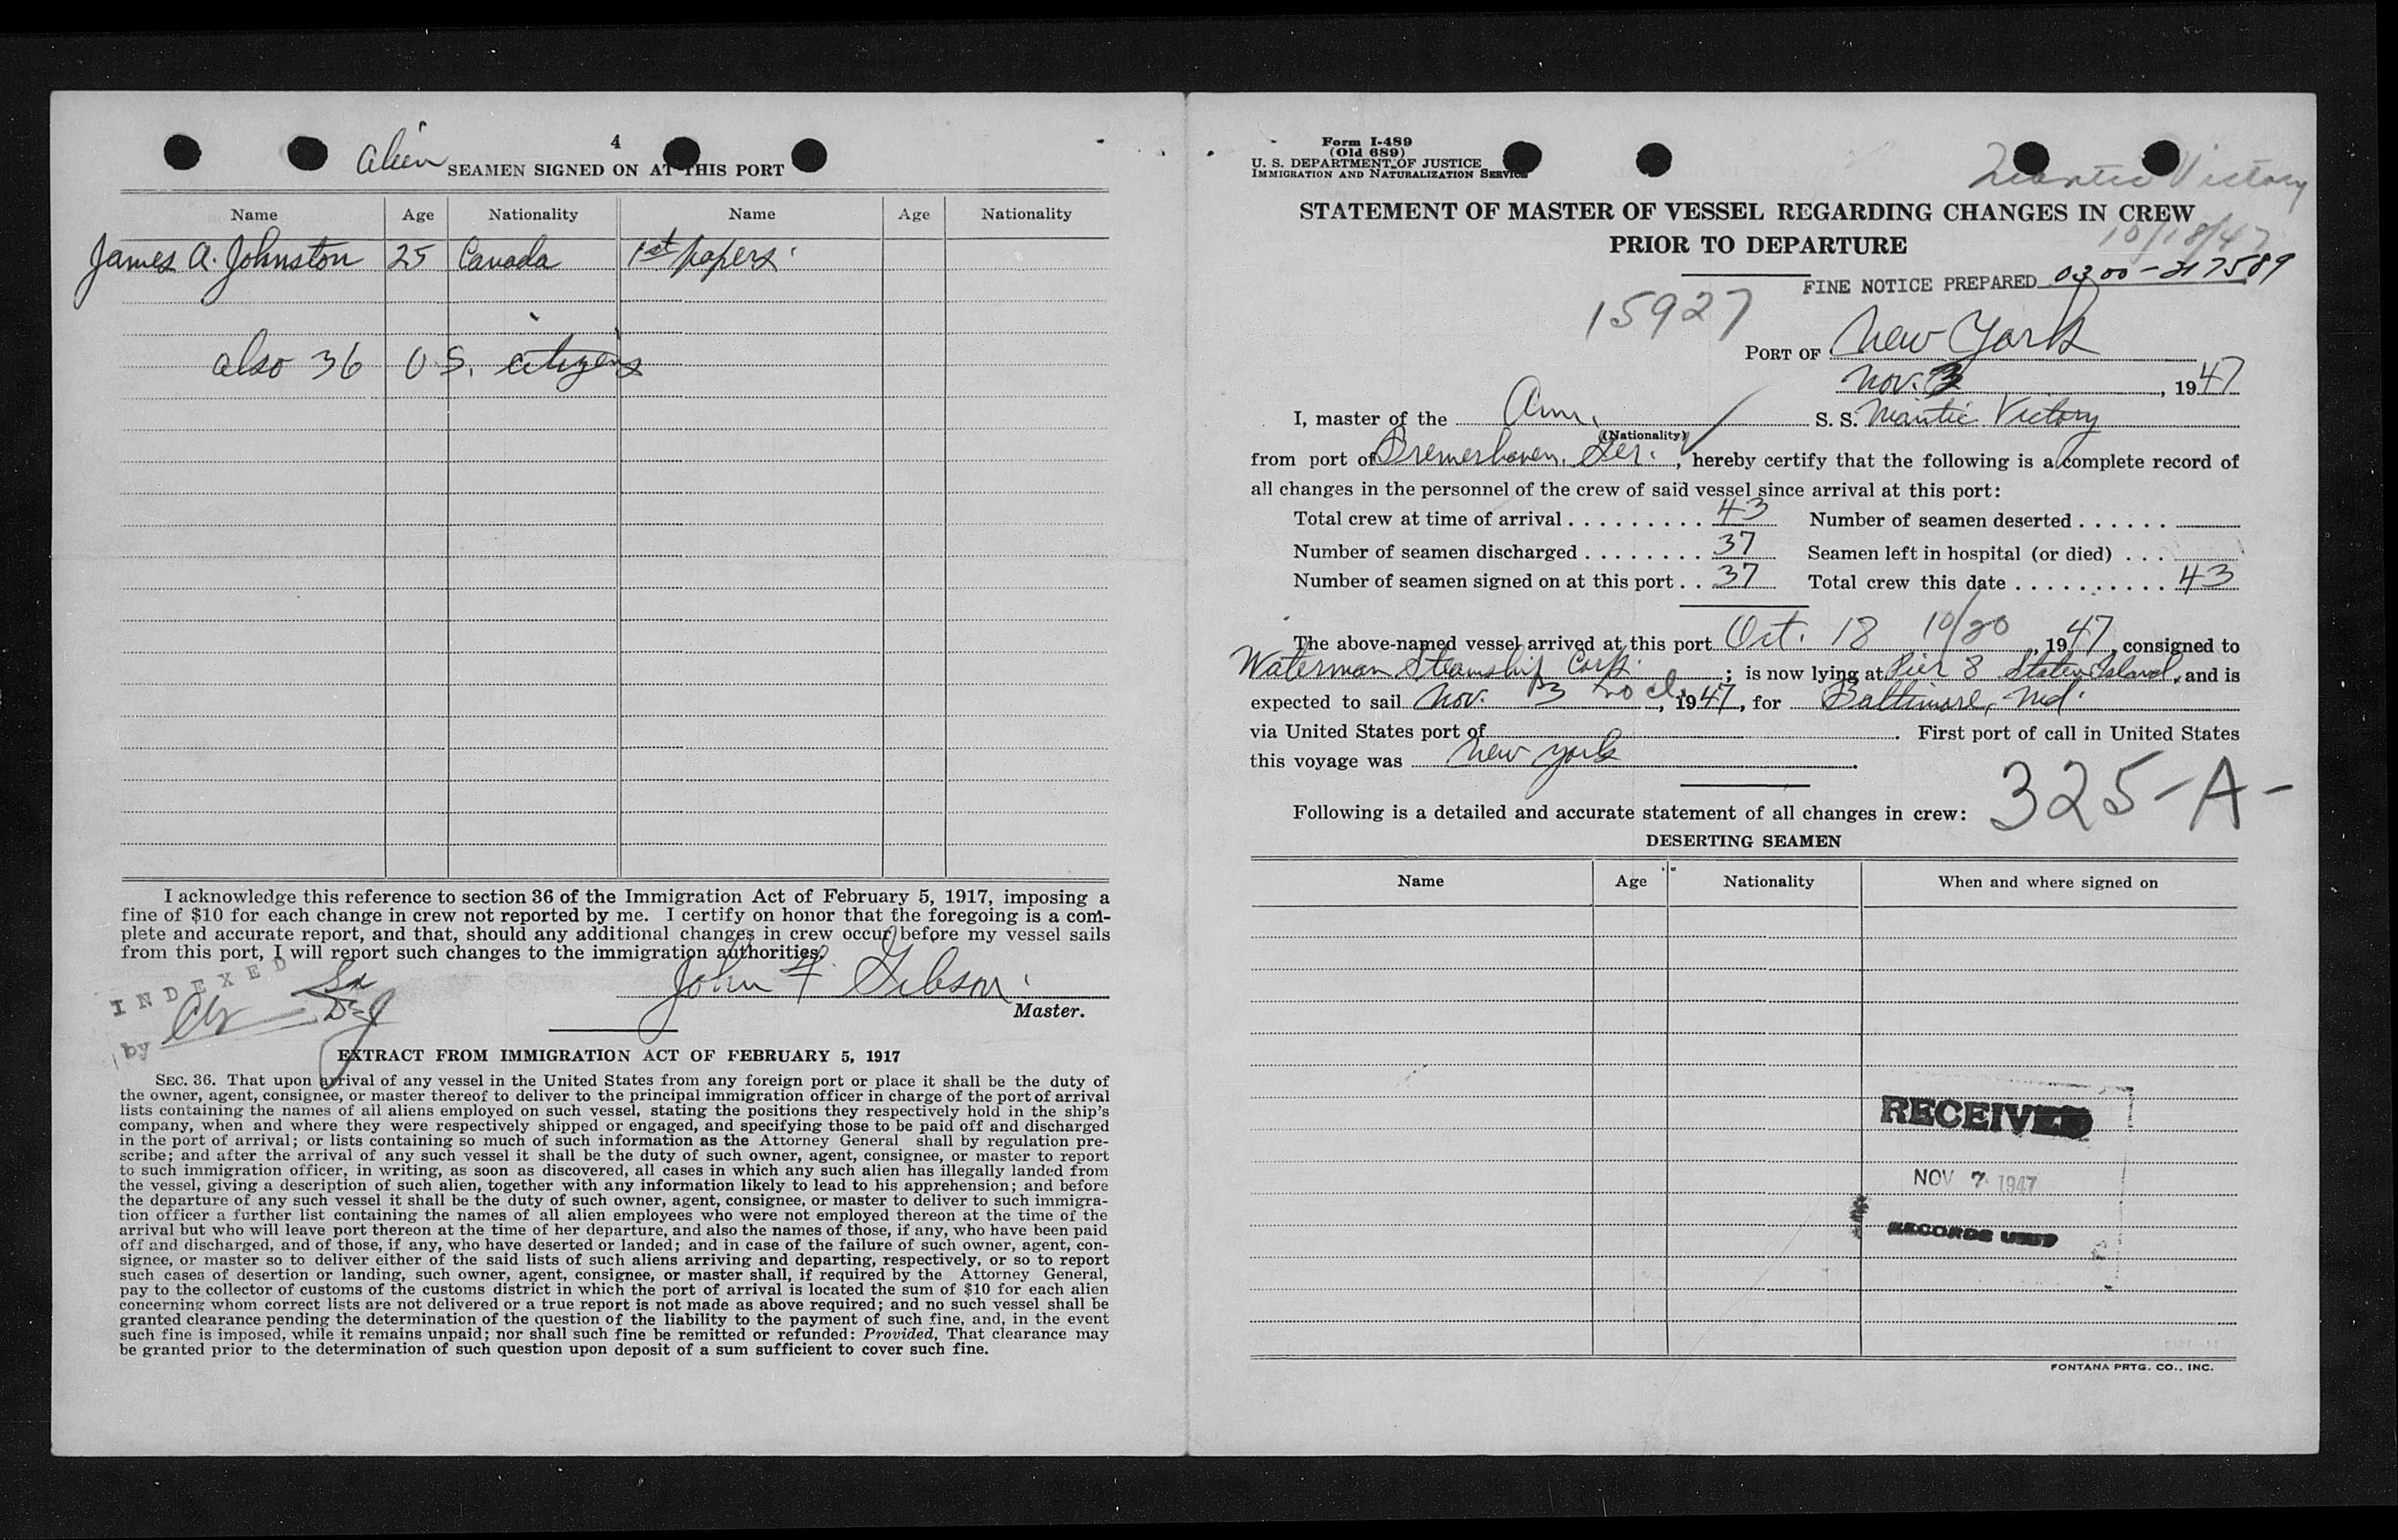 4
Alien SEAMEN SIGNED ON AT THIS PORT
Name Age Nationality Name Age Nationality
James A. Johnston 25 Canada 1st papers
also 36 U.S. citizens
I acknowledge this reference to section 36 of the Immigration Act of February 5, 1917, imposing a
fine of $10 for each change in crew not reported by me. I certify on honor that the foregoing is a com-
plete and accurate report, and that, should any additional changes in crew occur before my vessel sails
from this port, I will report such changes to the immigration authorities.
INDEXED
by
John F. Gibson
Master.
EXTRACT FROM IMMIGRATION ACT OF FEBRUARY 5, 1917
SEC. 36. That upon arrival of any vessel in the United States from any foreign port or place it shall be the duty of
the owner, agent, consignee, or master thereof to deliver to the principal immigration officer in charge of the port of arrival
lists containing the names of all aliens employed on such vessel, stating the positions they respectively hold in the ship's
company, when and where they were respectively shipped or engaged, and specifying those to be paid off and discharged
in the port of arrival; or lists containing so much of such information as the Attorney General shall by regulation pre-
scribe; and after the arrival of any such vessel it shall be the duty of such owner, agent, consignee, or master to report
to such immigration officer, in writing, as soon as discovered, all cases in which any such alien has illegally landed from
the vessel, giving a description of such alien, together with any information likely to lead to his apprehension; and before
the departure of any such vessel it shall be the duty of such owner, agent, consignee, or master to deliver to such immigra-
tion officer a further list containing the names of all alien employees who were not employed thereon at the time of the
arrival but who will leave port thereon at the time of her departure, and also the names of those, if any, who have been paid
off and discharged, and of those, if any, who have deserted or landed; and in case of the failure of such owner, agent, con-
signee, or master so to deliver either of the said lists of such aliens arriving and departing, respectively, or so to report
such cases of desertion or landing, such owner, agent, consignee, or master shall, if required by the Attorney General,
pay to the collector of customs of the customs district in which the port of arrival is located the sum of $10 for each alien
concerning whom correct lists are not delivered or a true report is not made as above required; and no such vessel shall be
granted clearance pending the determination of the question of the liability to the payment of such fine, and, in the event
such fine is imposed, while it remains unpaid; nor shall such fine be remitted or refunded: Provided, That clearance may
be granted prior to the determination of such question upon deposit of a sum sufficient to cover such fine.
Form I-489
(Old 689)
U. S. DEPARTMENT OF JUSTICE
IMMIGRATION AND NATURALIZATION SERVICE
Niantic Victory
STATEMENT OF MASTER OF VESSEL REGARDING CHANGES IN CREW
PRIOR TO DEPARTURE
10/18/47
FINE NOTICE PREPARED 0300-317589
15927
PORT OF New York
Nov. 3, 1947
I, master of the Am. S. S. Niantic Victory
(Nationality)
from port of Bremerhaven, Ger., hereby certify that the following is a complete record of
all changes in the personnel of the crew of said vessel since arrival at this port:
Total crew at time of arrival 43 Number of seamen deserted
Number of seamen discharged 37 Seamen left in hospital (or died)
Number of seamen signed on at this port 37 Total crew this date 43
The above-named vessel arrived at this port Oct. 18 10/20, 1947, consigned to
Waterman Steamship Corp.; is now lying at Pier 8 Staten Island, and is
expected to sail Nov. 3, 1947, for Baltimore, Md.
via United States port of . First port of call in United States
this voyage was New York.
325-A-
Following is a detailed and accurate statement of all changes in crew:
DESERTING SEAMEN
Name Age Nationality When and where signed on
RECEIVED
NOV 7 1947
RECORDS UNIT
FONTANA PRTG. CO., INC.